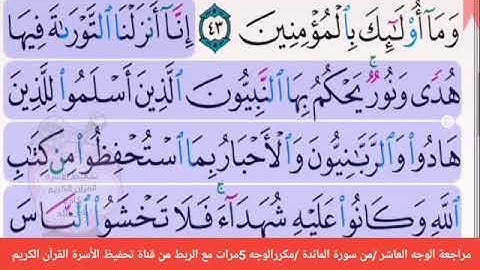 وَمَآ أُو۟لَـٰٓئِكَ بِٱلْمُؤْمِنِينَ ٤٣ إِنَّآ أَنزَلْنَا ٱلتَّوْرَىٰةَ فِيهَا
هُدًى وَنُورٌ ۚ يَحْكُمُ بِهَا ٱلنَّبِيُّونَ ٱلَّذِينَ أَسْلَمُوا۟ لِلَّذِينَ
هَادُوا۟ وَٱلرَّبَّـٰنِيُّونَ وَٱلْأَحْبَارُ بِمَا ٱسْتُحْفِظُوا۟ مِن كِتَـٰبِ
ٱللَّهِ وَكَانُوا۟ عَلَيْهِ شُهَدَآءَ ۚ فَلَا تَخْشَوُا۟ ٱلنَّاسَ
مراجعة الوجه العاشر /من سورة المائدة /مكررالوجه 5مرات مع الربط من قناة تحفيظ الأسرة القرآن الكريم